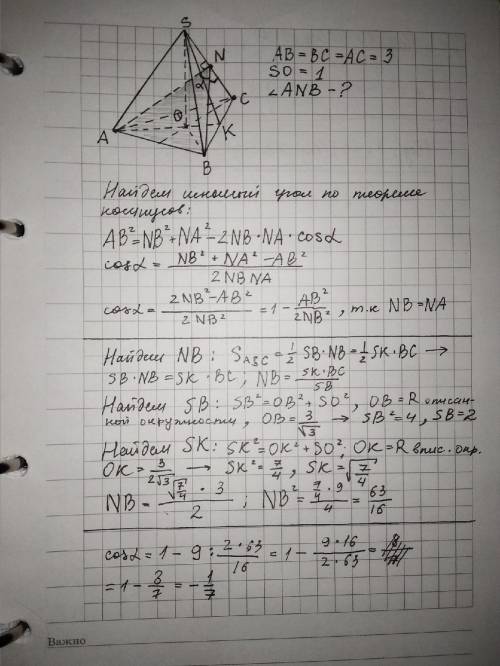 S
N
AB = BC = AC = 3
SO = 1
∠ANB - ?
α
C
O
K
A
B
Найдем искомый угол по теореме
косинусов:
AB² = NB² + NA² - 2NB·NA·cosα
cosα = (NB² + NA² - AB²) / (2NB NA)
cosα = (2NB² - AB²) / (2NB²) = 1 - AB² / (2NB²), т.к NB = NA
Найдем NB: S_ABC = 1/2 SB·NB = 1/2 SK·BC →
SB·NB = SK·BC; NB = SK·BC / SB
Найдем SB: SB² = OB² + SO², OB = R описан-
ной окружности, OB = 3/√3 → SB² = 4, SB = 2
Найдем SK: SK² = OK² + SO², OK = R впис. окр.
OK = 3 / (2√3) → SK² = 7/4, SK = √(7/4)
NB = (√(7/4) · 3) / 2; NB² = (7/4 · 9) / 4 = 63/16
cosα = 1 - 9 : (2·63)/16 = 1 - (9·16)/(2·63) =
= 1 - 8/7 = -1/7
Важно